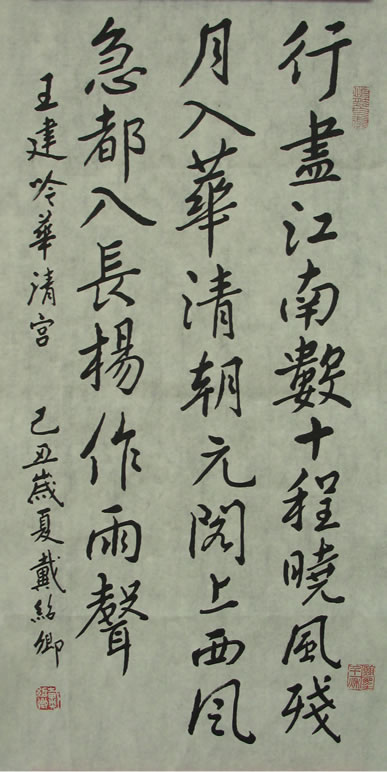 行盡江南數十程曉風殘
月入華清朝元閣上西風
急都入長楊作雨聲
王建吟華清宮 己丑歲夏戴紹卿